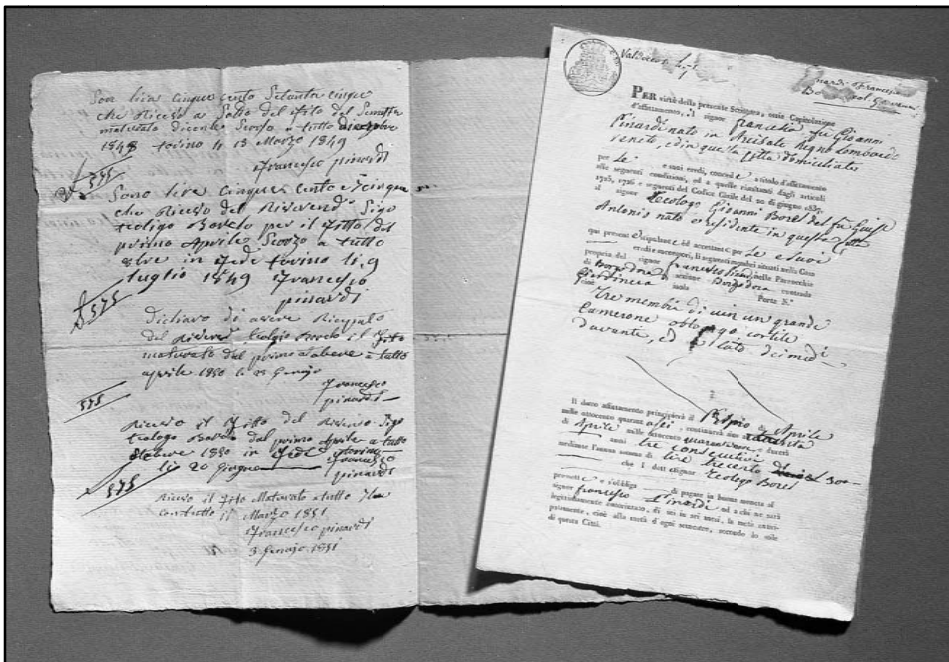 Son lire cinque cento Setanta cinque
che Ricevo a Saldo del fito del Semestre
maturato dicento Scorso a tutto
1848 torino li 13 Marzo 1849
francesco pinardi
575
Sono lire cinque cento e
che Ricevo dal Riverendo Sigr
teoligo Borelo per il fitto dal
primo Aprile Scorso a tutto
in fede torino li 9
luglio 1849 francesco
pinardi
575
Dichiaro di avere
dal Borelo il fito
maturato dal primo a tutto
aprile 1850 li 23 Genajo
francesco
pinardi
575
Ricevo il fitto del Sigr
teologo Borelo dal primo Aprile a tutto
1850 in fede torino
li 20 Giugno francesco
pinardi
575
Ricevo il fito Maturato a tutto
Marzo 1851
francesco pinardi
3 Genajo 1851
Pinardi Francesco
Borel Giovanni
PER virtù della presente Scrittura, ossia Capitolazione
d'affittamento, il signor Francesco fu Gioanni
Pinardi nato in Arcisate Regno Lombardo
veneto, ed in questa Città domiciliato
per Se e suoi eredi, concede a titolo d'affittamento
alle seguenti condizioni, ed a quelle risultanti dagli articoli
1725, 1726 e seguenti del Codice Civile del 20 di giugno 1837,
al signor Teologo Gioanni Borel del fu Giuse
Antonio nato e residente in questa Città
qui present e stipulante ed accettante per Se e Suoi
eredi e successori, li seguenti membri situati nella Casa
propria del signor francesco Pinardi nella Parrocchia
di Borgodora sezione Borgodora contrada
Giardiniera isola
cioè Porta N.°
Tre membri di cui un grande
Camerone oblongo cortile
davante, ed lato
2
Il detto affittamento principierà il Primo di Aprile
mille ottocento quarantasei, continuerà sino a
di Aprile mille ottocento quarantanove e durerà
anni tre consecutivi
mediante l'annua somma di lire trecento
che il detto signor Teologo Borel
promette e s'obbliga di pagare in buona moneta al
signor francesco Pinardi od a chi ne sarà
legittimamente autorizzato, di sei in sei mesi, la metà antici-
patamente, cioè alla metà d'ogni semestre, secondo lo stile
di questa Città.